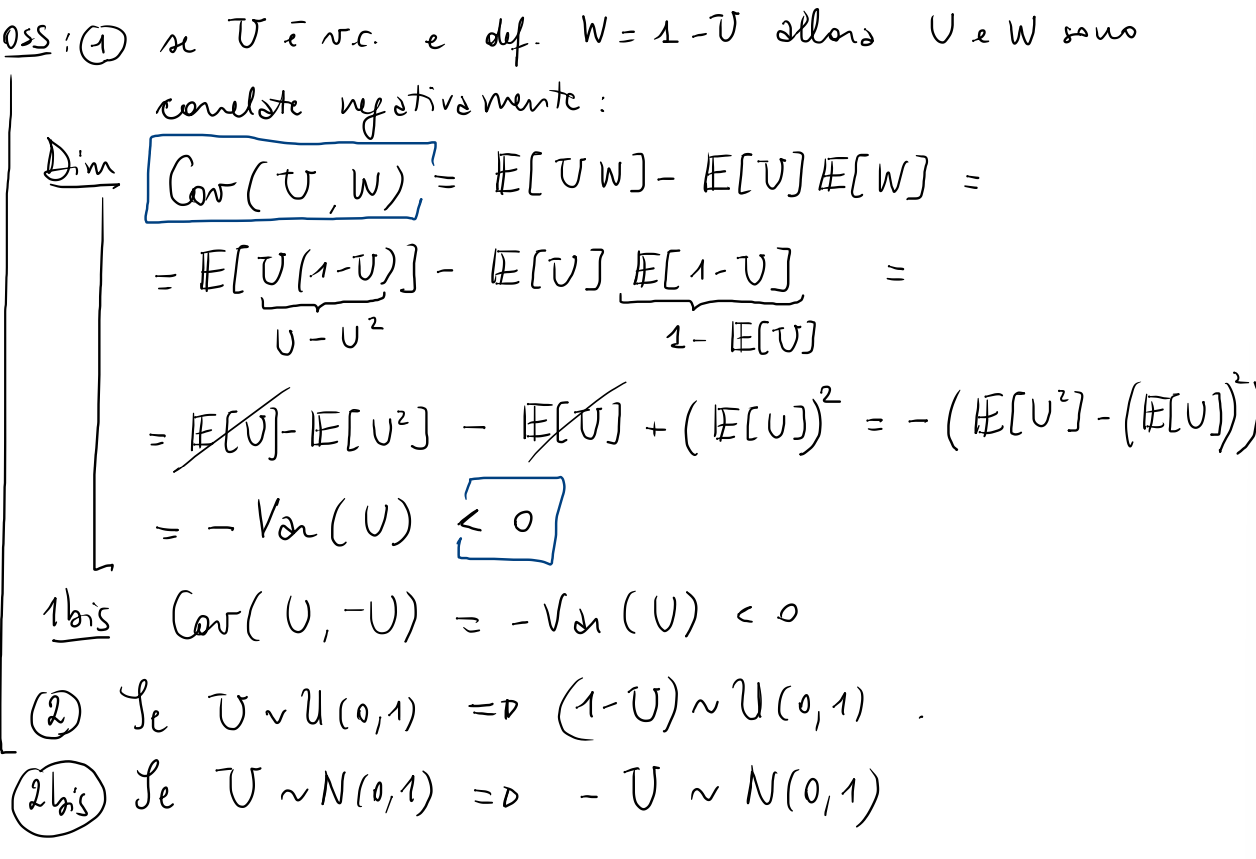 OSS: ① se U è v.c. e def. W = 1 - U allora U e W sono
correlate negativamente:
Dim Cov(U, W) = 𝔼[UW] - 𝔼[U]𝔼[W] =
= 𝔼[U(1-U)] - 𝔼[U] 𝔼[1-U] =
U - U² 1 - 𝔼[U]
= 𝔼[U] - 𝔼[U²] - 𝔼[U] + (𝔼[U])² = - (𝔼[U²] - (𝔼[U])²)
= - Var(U) < 0
1bis Cov(U, -U) = - Var(U) < 0
② Se U ~ U(0,1) => (1-U) ~ U(0,1).
2bis Se U ~ N(0,1) => - U ~ N(0,1)